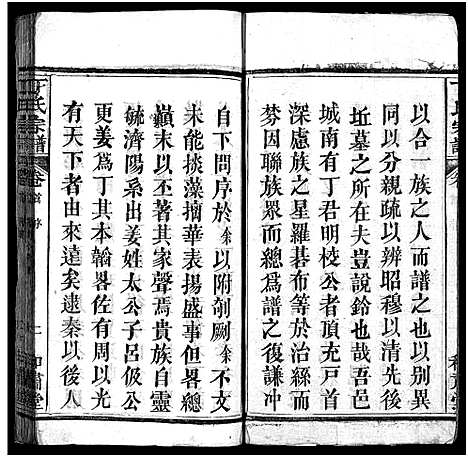 以合一族之人而譜之也以别異
同以分親疏以辨昭穆以清先後
坵墓之所在夫豈說鈴也哉吾邑
城南有丁君明棪公者頂充戸首
際諸族之星羅碁布等於清濟河
棼因聯族滙總為譜之復謙冲
自下問序於余以附剞劂余不文
未能掞藻摛華表揚盛事但畧總
顛末以丕著其家聲焉貴族自靈
毓濟陽系出姜姓太公子呂伋公
更姜為丁其本翰畧佐有周以光
有天下者由來遠矣逮秦以後人
丁氏宗譜
卷首
和肅堂